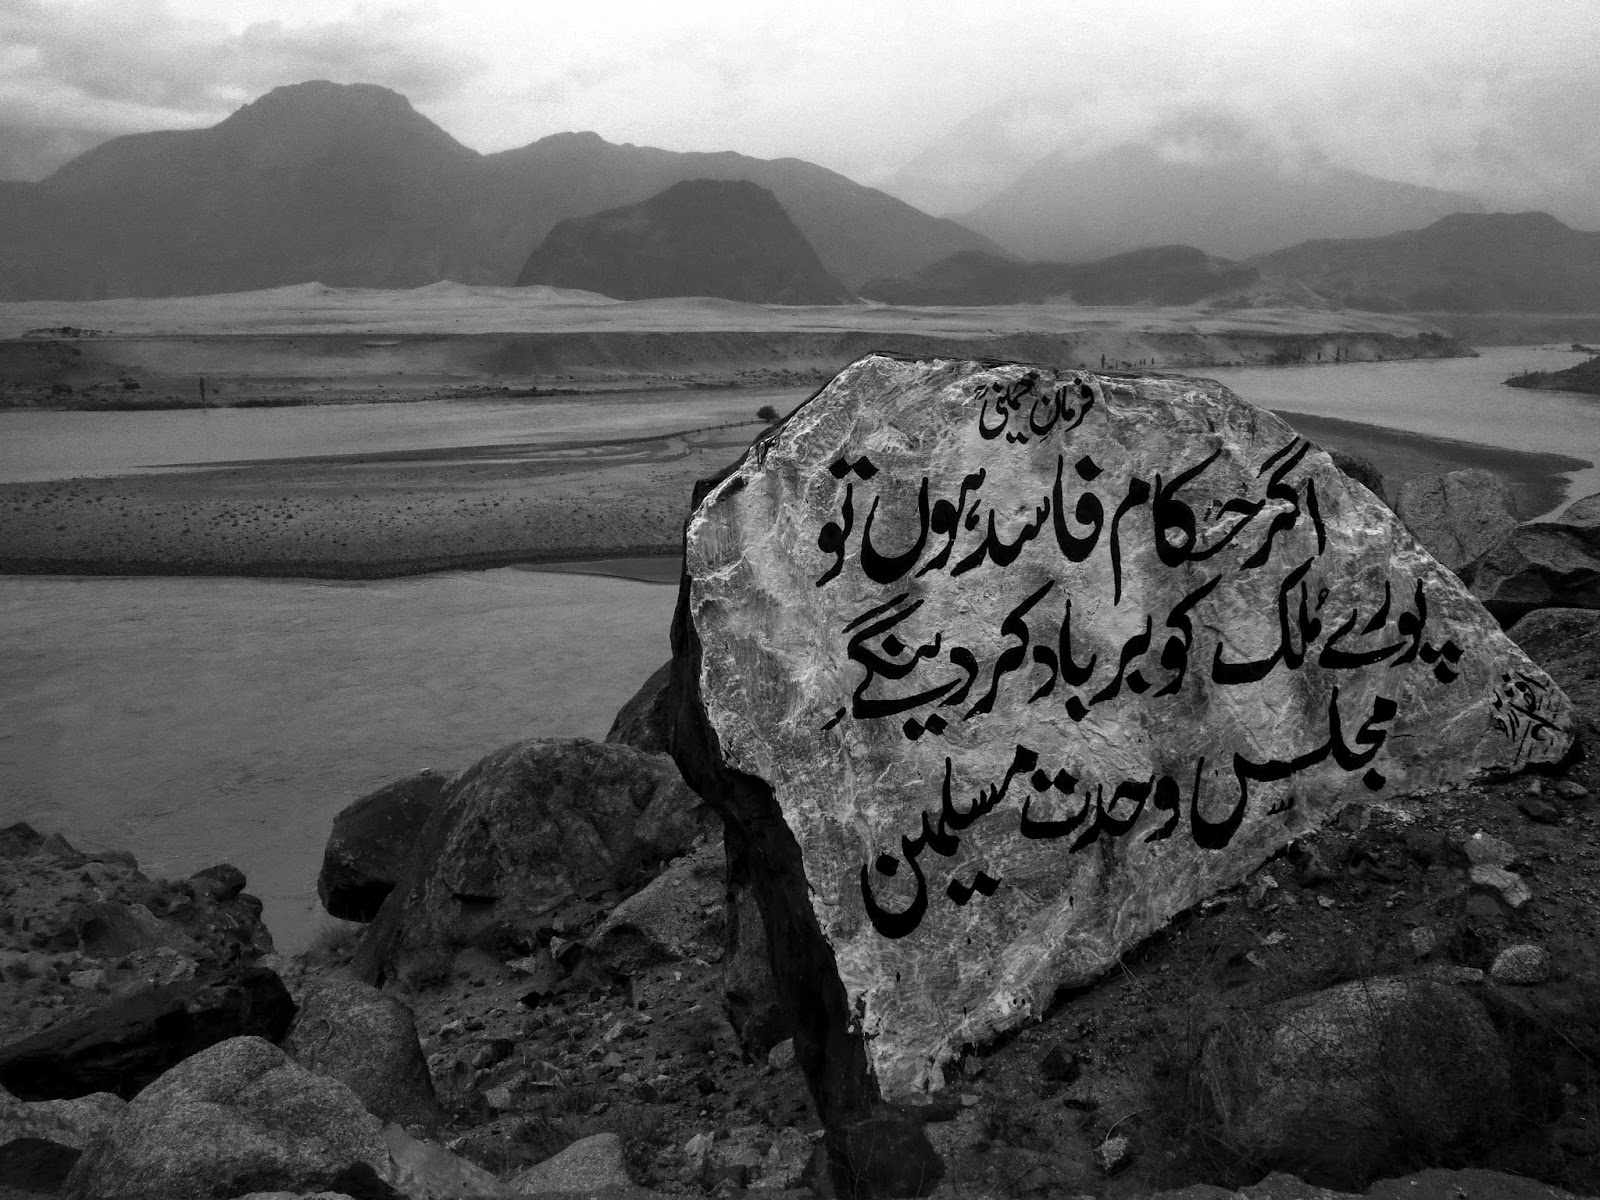 فرمانِ خمینیؒ
اگر حکام فاسد ہوں تو
پورے مُلک کو برباد کر دینگے
مجلس وحدت مسلمین